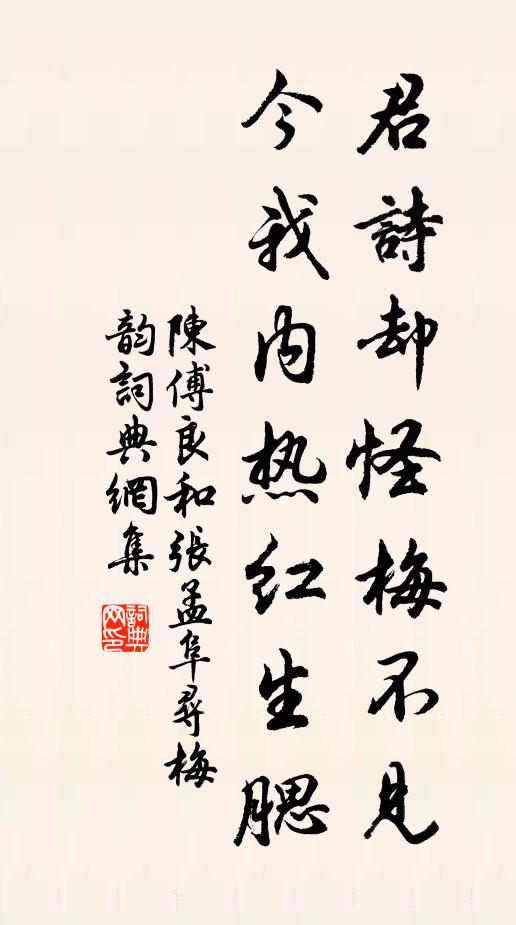 君詩却怪梅不見
今我内热红生腮
陳傅良和張孟阜尋梅
韵詞典網集
詞典網印